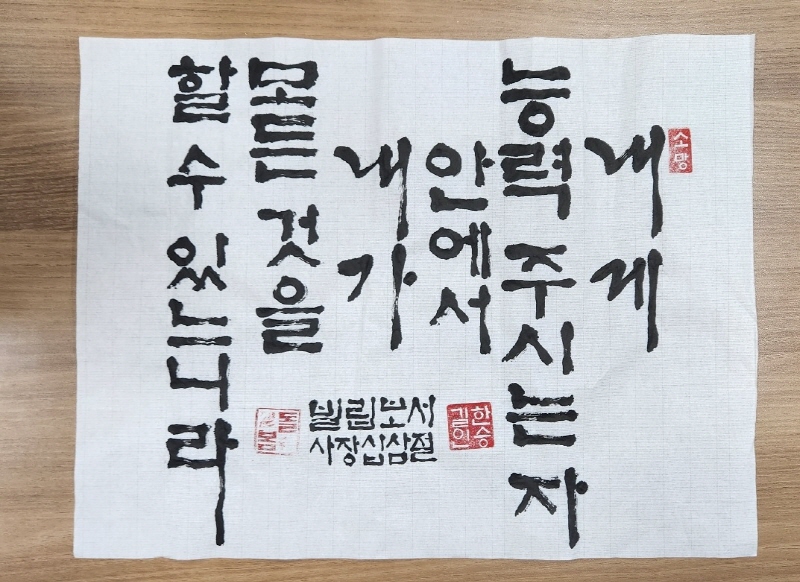 소망
내게
능력 주시는 자
안에서
내가
모든 것을
할 수 있느니라
빌립보서
사장십삼절